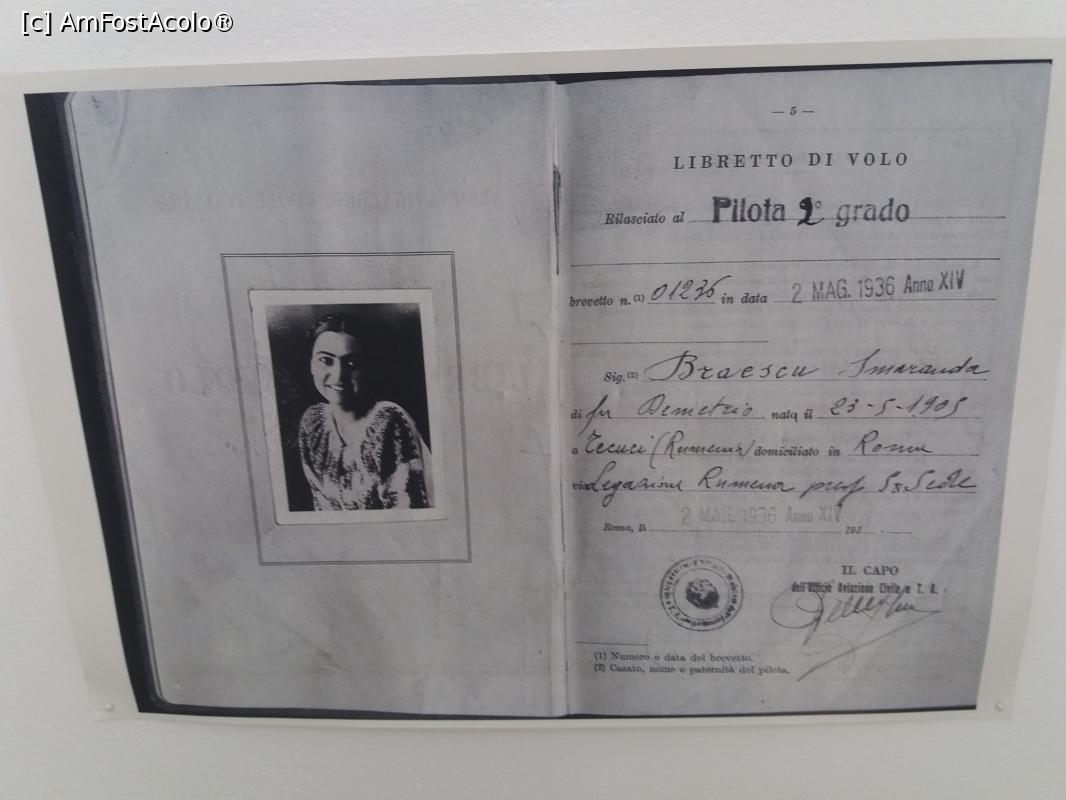 [c] AmFostAcolo®
— 5 —
LIBRETTO DI VOLO
Rilasciato al Pilota 2° grado
brevetto n. (1) 01236 in data 2 MAG. 1936 Anno XIV
Sig. (2) Braescu Smaranda
di fu Demetrio nata il 23-5-1905
a Tecuci (Rumenia) domiciliato in Roma
via Legazione Rumena pres S. Sede
Roma, li 2 MAG. 1936 Anno XIV 193
IL CAPO
dell'Ufficio Aviazione Civile e T. A.
(1) Numero e data del brevetto.
(2) Casato, nome e paternità del pilota.